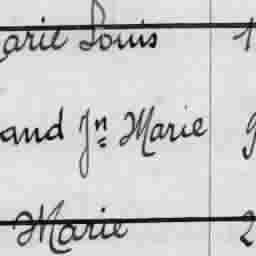 arie Louis 1
and Jn Marie 9
Marie 2